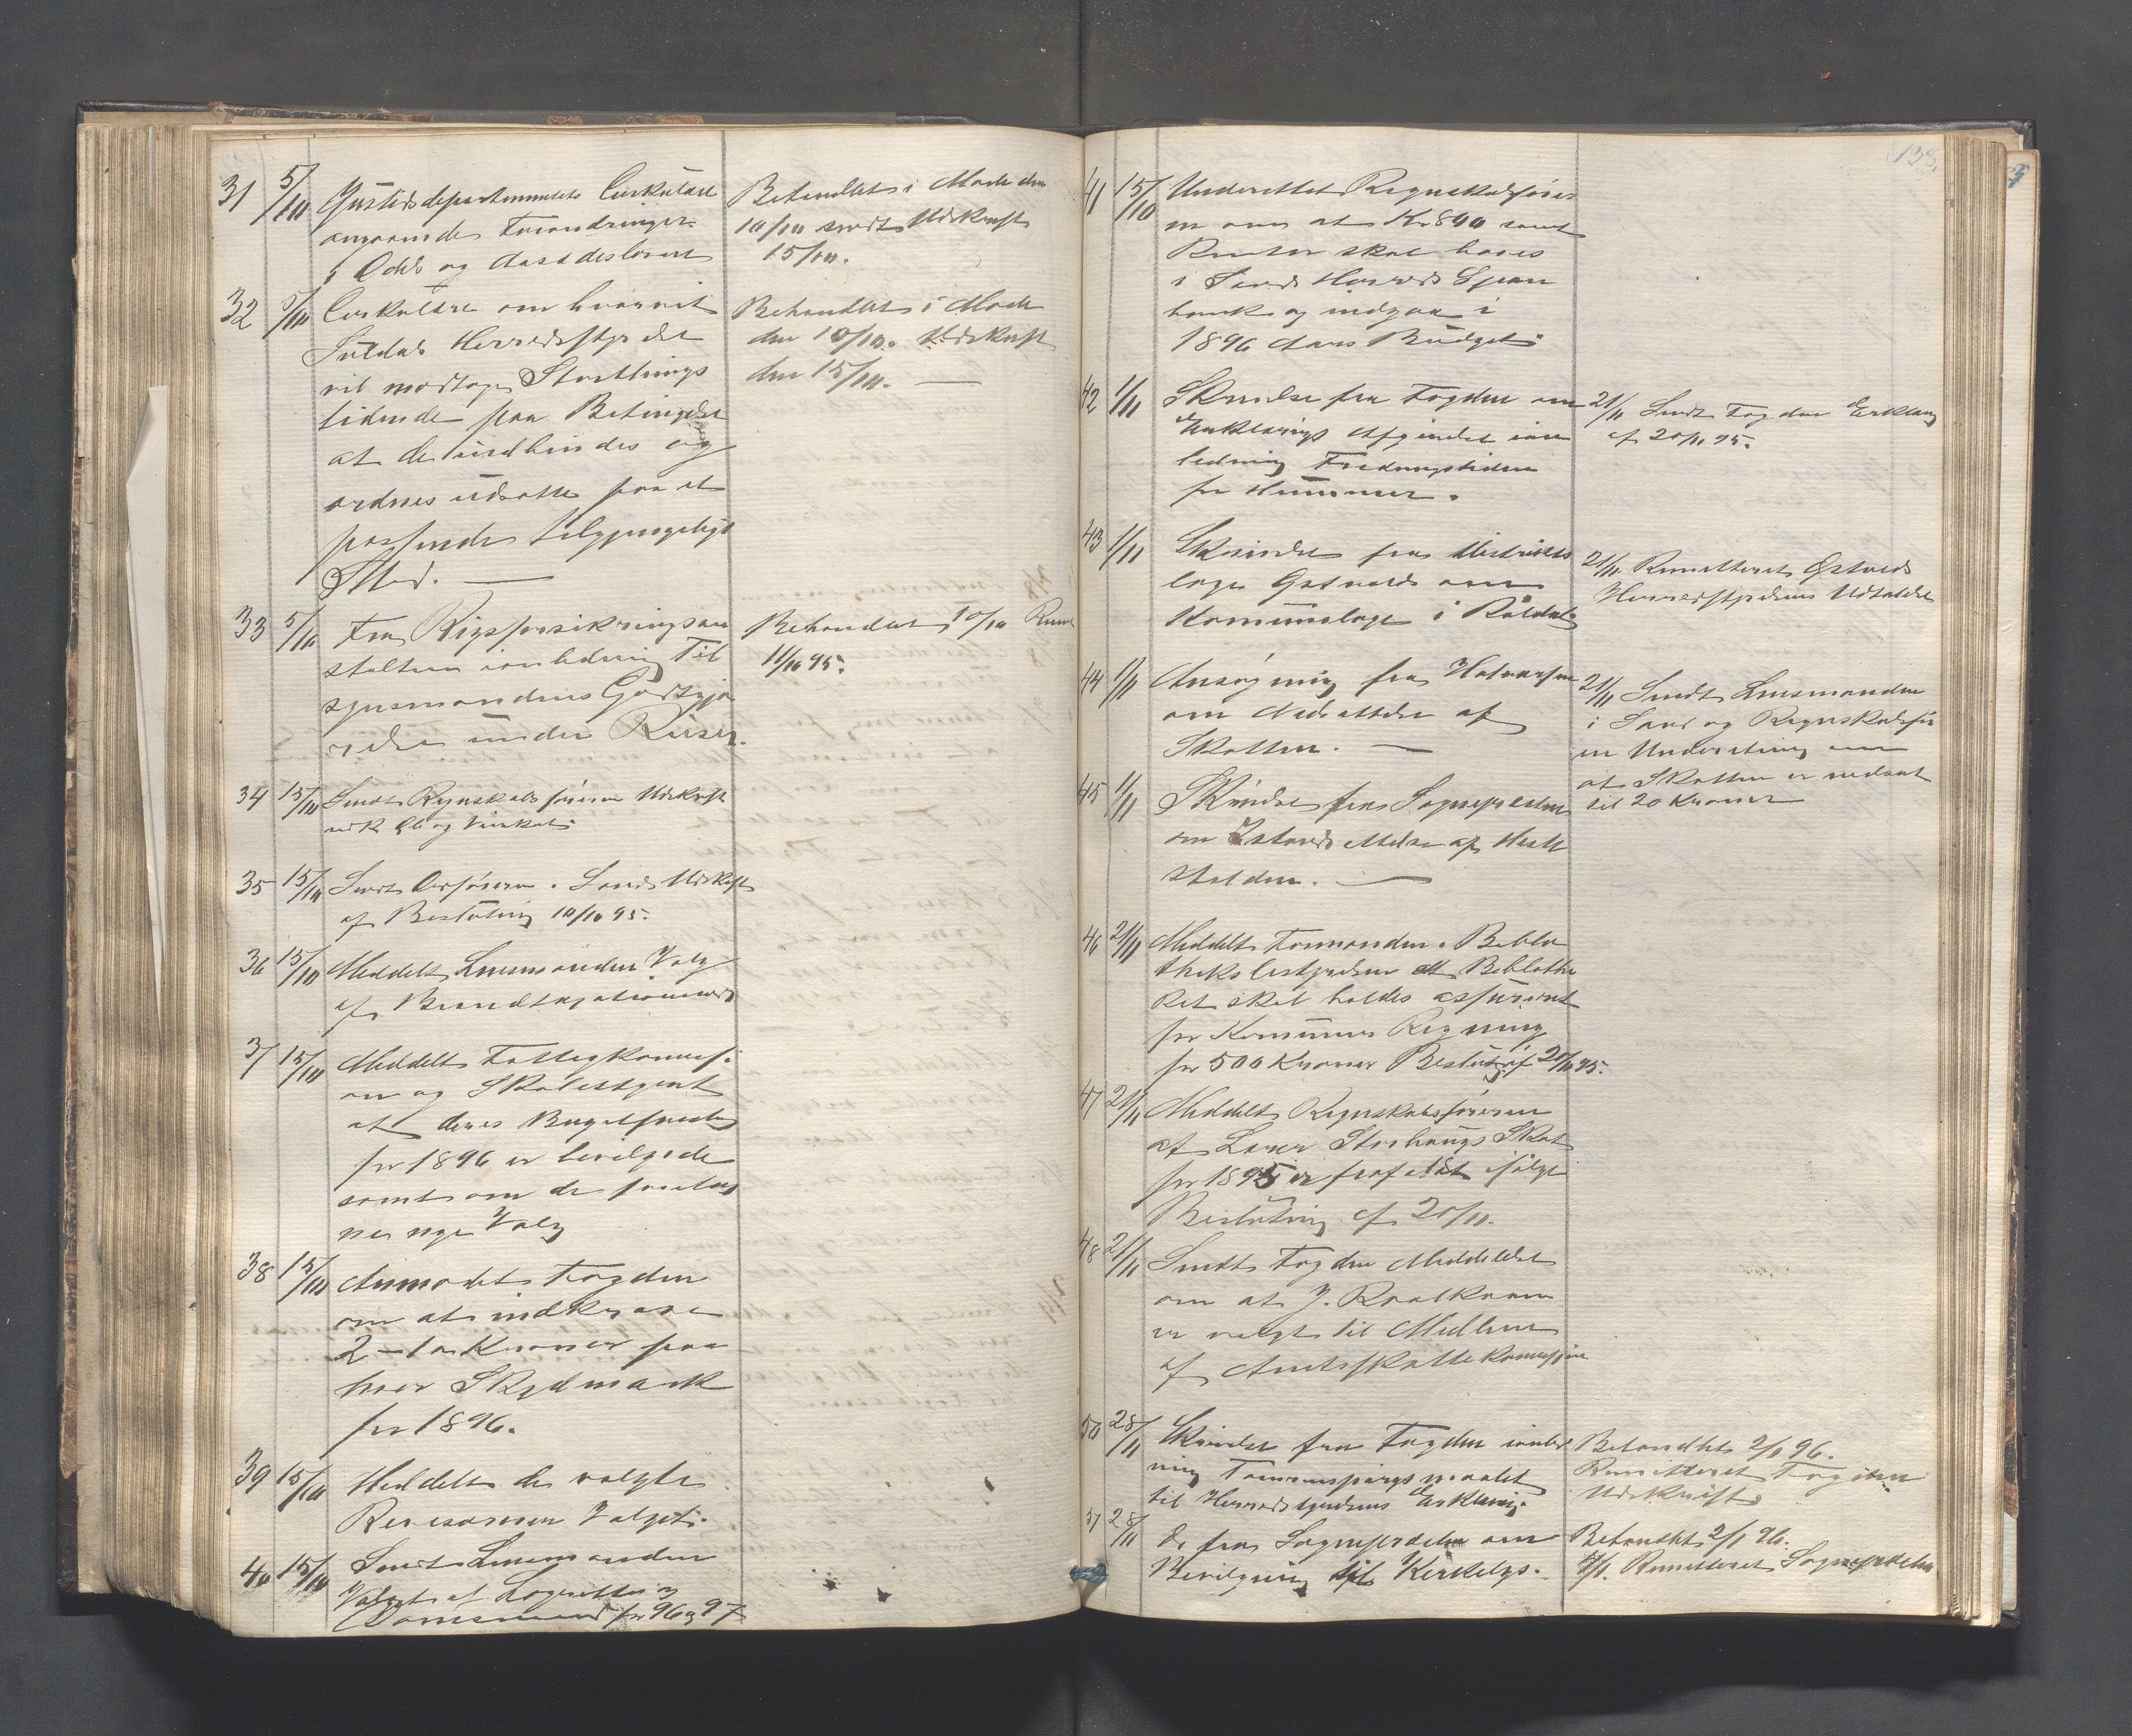 31 5/10 Justisdepartementets Cirkulære
angaaende Forandringer
i Odels og Aasædesloven
Behandlet i Møde den
10/10 sendt Udskrift
15/10.
32 5/10 Cirkulære om hvorvit
Suldals Herredsstyrelse
vil modtage Storthings
tidende paa Betingelse
at de indbindes og
ordnes udsatte paa et
passende tilgjængeligt
Sted. —
Behandlet i Møde
den 10/10. Udskrift
den 15/10. —
33 5/10 Fra Rigsforsikringsan
stalten ianledning Til
synsmandens Godtgjø
relse under Reiser.
Behandlet 10/10
11/10 95.
34 15/10 Sendt Regnskabsføreren Udskrift
35 15/10 Sendt Ordføreren i Sand Udskrift
af Beslutning 10/10 95.
36 15/10 Meddelt Lensmanden Valg
af Brandtaxationsmænd
37 15/10 Meddelt Fattigkomiss.
on og Skolestyret
at deres Bugetforslag
for 1896 er bevilgede
samt om de foretag
ne nye Valg
38 15/10 Anmodet Fogden
om at indkræve
2 – to Kroner paa
hver Skyldmark
for 1896.
39 15/10 Meddelt de valgte
Revisorer Valget.
40 15/10 Sendt Lensmanden
Valget af Lagrette og
Domsmænd for 96 og 97
138.
41 15/10 Underettet Regnskabsføre
en om at Kr 800 samt
Renter skal haves
i Sands Herreds Spare
bank og indgaa i
1896 Aars Budget.
42 1/11 Skrivelse fra Fogden om
Erklærings Afgivelse ian
ledning Fredningstiden
for Hummer.
21/11 Sendt Fogden Erklæring
af 20/11 95.
43 1/11 Skrivelse fra Distrikts
læge Østvold om
Komunelæge i Røldal.
21/11 Remitteret Østvold
Herredsstyrelsens Udtalelse
44 1/11 Ansøgning fra Halvorsen
om Nedsættelse af
Skatten. —
21/11 Sendt Lensmanden
i Sand og Regnskabsfør
en Underetning om
at Skatten er nedsat
til 20 Kroner
45 1/11 Skrivelse fra Sognepresten
om Istandsettelse af Heste
stalden. —
46 21/11 Meddelt Formanden i Biblio
theksbestyrelsen at Bibliothe
ket skal holdes assureret
for Komunens Regning
for 500 Kroner Beslutning af 20/11 95.
47 21/11 Meddelt Regnskabsføreren
at Lærer Skat
for 1895 er frafaldt ifølge
Beslutning af 20/11.
48 21/11 Sendt Fogden Meddelelse
om at J. Roalkvam
er valgt til Medlem
af Amtsskattekomission
50 28/11 Skrivelse fra Fogden ianled
ning
til Herredsstyrelsens Erklæring.
Behandlet 2/1 96.
Remitteret Fogden
Udskrift
51 28/11 Do fra Sognepresten om
Bevilgning til Kirkelys.
Behandlet 2/1 96.
4/1. Remitteret Sognepresten